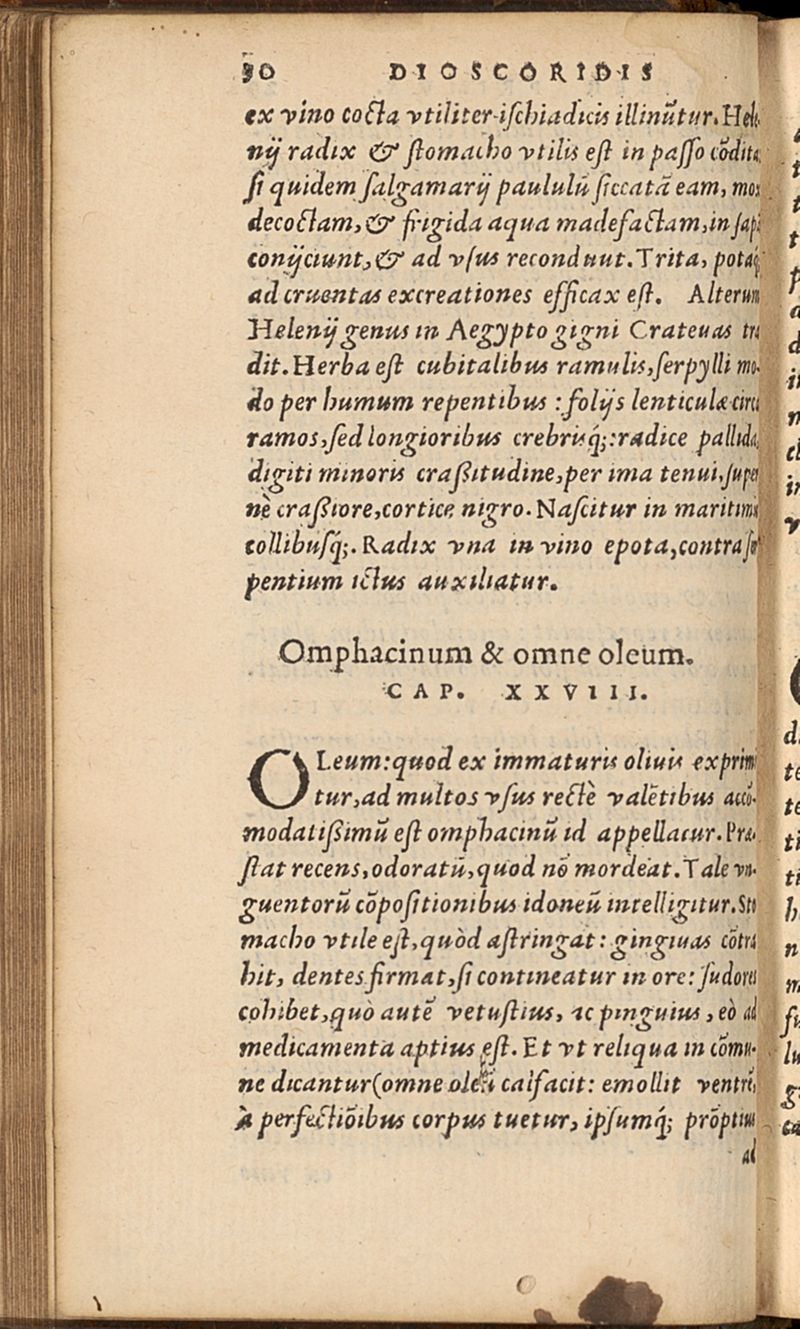 30 DIOSCORIDIS
ex vino cocta vtiliter ischiadicis illinūtur. Hele
nij radix & stomacho vtilis est in passo cōdita,
si quidem salgamarij paululū siccatā eam, mox
decoctam, & frigida aqua madefactam, in sapa
conijciunt, & ad vsus recondunt. Trita, potaq́;
ad cruentas excreationes efficax est. Alterum
Helenij genus in Aegypto gigni Crateuas tra
dit. Herba est cubitalibus ramulis, serpylli mo-
do per humum repentibus : folijs lenticulæ circa
ramos, sed longioribus crebrisq́;: radice pallida,
digiti minoris craßitudine, per ima tenui, super
nè craßiore, cortice nigro. Nascitur in maritimis
collibusq́;. Radix vna in vino epota, contra ser
pentium ictus auxiliatur.
Omphacinum & omne oleum.
CAP. XXVIII.
OLeum: quod ex immaturis oliuis exprimi
tur, ad multos vsus rectè valētibus accō-
modatißimū est omphacinū id appellatur. Præ-
stat recens, odoratū, quod nō mordeat. Tale vn-
guentorū cōpositionibus idoneū intelligitur. Sto
macho vtile est, quòd astringat : gingiuas cōtra
hit, dentes firmat, si contineatur in ore: sudores
cohibet, quò autē vetustius, ac pinguius, eò ad
medicamenta aptius est. Et vt reliqua in cōmu-
ne dicantur (omne oleū calfacit: emollit ventrē,
à perfectiōibus corpus tuetur, ipsumq́; prōptius
ad